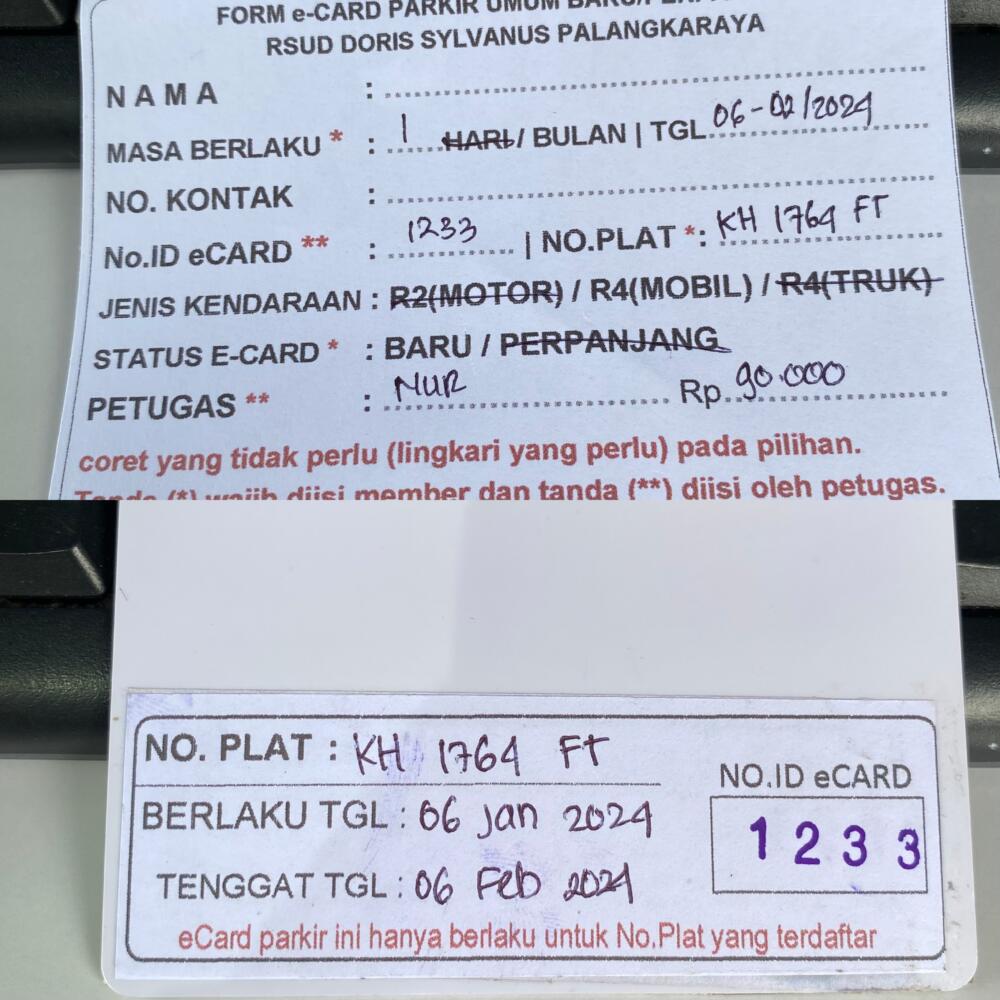 FORM e-CARD PARKIR UMUM
RSUD DORIS SYLVANUS PALANGKARAYA
NAMA :
MASA BERLAKU * : 1 HARI / BULAN | TGL 06-02/2024
NO. KONTAK :
No.ID eCARD ** : 1233 | NO.PLAT *: KH 1764 FT
JENIS KENDARAAN : R2(MOTOR) / R4(MOBIL) / R4(TRUK)
STATUS E-CARD * : BARU / PERPANJANG
PETUGAS ** : NUR Rp. 90.000
coret yang tidak perlu (lingkari yang perlu) pada pilihan.
Tanda (*) wajib diisi member dan tanda (**) diisi oleh petugas.
NO. PLAT : KH 1764 FT
NO.ID eCARD
BERLAKU TGL : 06 Jan 2024
1233
TENGGAT TGL : 06 Feb 2024
eCard parkir ini hanya berlaku untuk No.Plat yang terdaftar